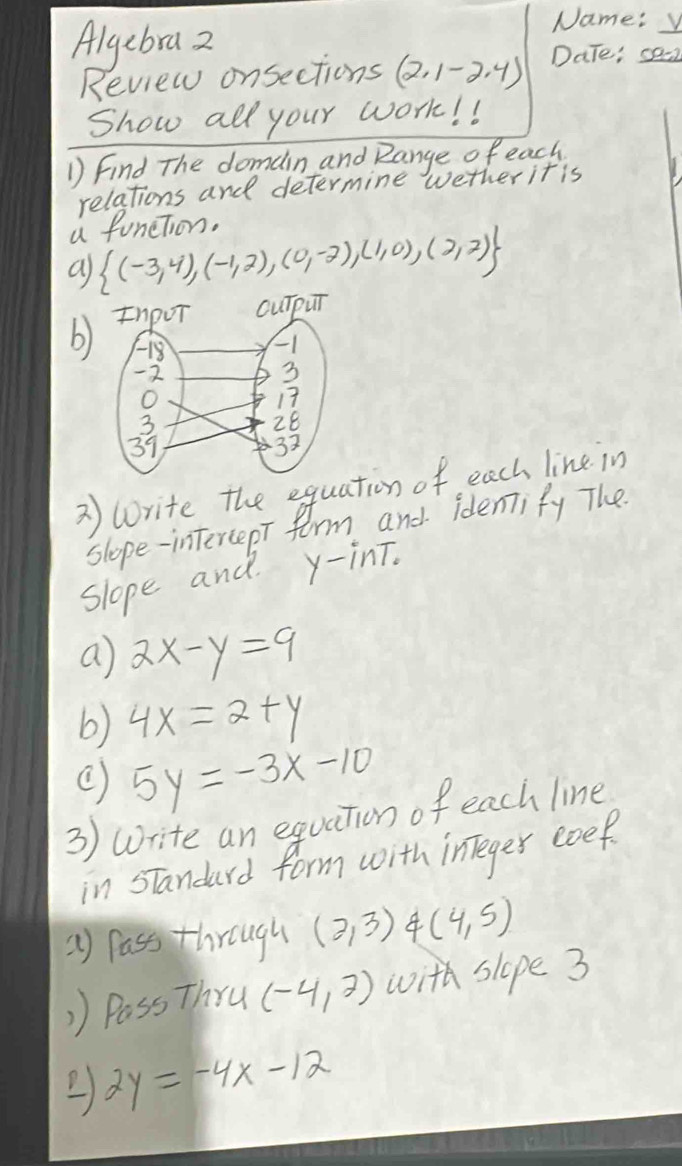 Algebra 2
Name:
Review on sections (2.1-2.4)
Date:
Show all your work!!
1) Find The domain and Range of each
relations and determine wether it is
a function.
a) {(-3,4), (-1,2), (0,-2), (1,0), (2,2)}
b) Input output
-18 -1
-2 3
0 17
3 28
39 32
2) Write the equation of each line in
slope-intercept form and identify The
slope and y-int.
a) 2x-y=9
b) 4x=2+y
c) 5y=-3x-10
3) Write an equation of each line
in standard form with integer coef.
a) Pass through (2,3) & (4,5)
) Pass Thru (-4,2) with slope 3
) 2y=-4x-12